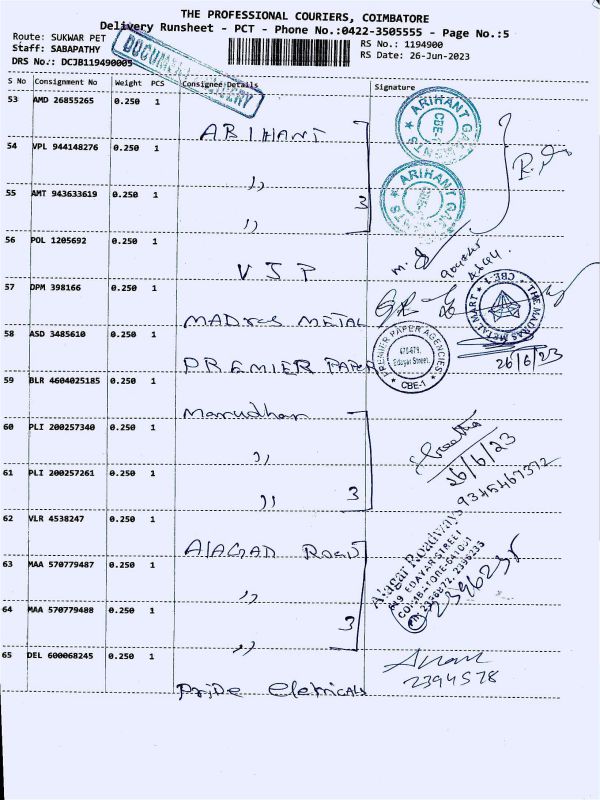 THE PROFESSIONAL COURIERS, COIMBATORE
Delivery Runsheet - PCT - Phone No.:0422-3505555 - Page No.:5
Route: SUKWAR PET
RS No.: 1194900
Staff: SABAPATHY
RS Date: 26-Jun-2023
DRS No.: DCJB119490005
DOCUMENT DELIVERY
S No Consignment No Weight PCS Consignee Details Signature
53 AMD 26855265 0.250 1
ARIHANT
ARIHANT
CBE-1
54 VPL 944148276 0.250 1
,,
ARIHANT
55 AMT 943633619 0.250 1
,,
3
56 POL 1205692 0.250 1
VJP
57 DPM 398166 0.250 1
MADras METAL
THE MADRAS METAL MART
CBE-1
26/6/23
58 ASD 3485610 0.250 1
PREMIER PAPER
PREMIER PAPER AGENCIES
Edayar Street,
CBE-1
59 BLR 4604025185 0.250 1
Marudhar
60 PLI 200257340 0.250 1
,,
26/6/23
61 PLI 200257261 0.250 1
,,
3
9345467372
62 VLR 4538247 0.250 1
AlAGAR ROAD
Alagar Roadways
EDAYAR STREET
COIMBATORE-641001
PH: 2396235
63 MAA 570779487 0.250 1
,,
64 MAA 570779488 0.250 1
,,
3
65 DEL 600068245 0.250 1
2394578
Pride eletricals